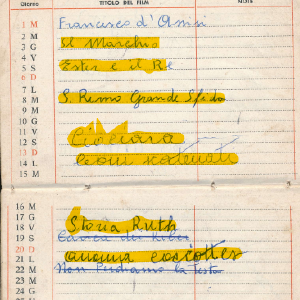 Giorno TITOLO DEL FILM NOTE
1 M Francesco d'Assisi
2 M Il Marchio
3 G
4 V
5 S Ester e il Re
6 D
7 L
8 M S. Remo Grande Sfida
9 M
10 G
11 V
12 S Ciociara
13 D
14 L
15 M
16 M
17 G
18 V Storia Ruth
19 S
20 D
21 L
22 M Non Perdiamo la testa
23 M
24 G